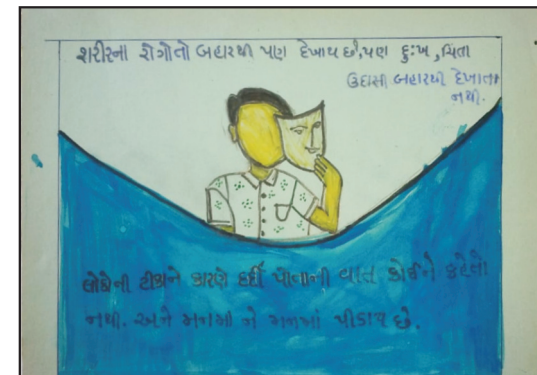 શરીરના રોગોતો બહારથી પણ દેખાય છે, પણ દુઃખ, ચિંતા
ઉદાસી બહારથી દેખાતા
નથી.
લોકોની ટીકાને કારણે દર્દી પોતાની વાત કોઈને કહેતો
નથી. અને મનમાં ને મનમાં પીડાય છે.